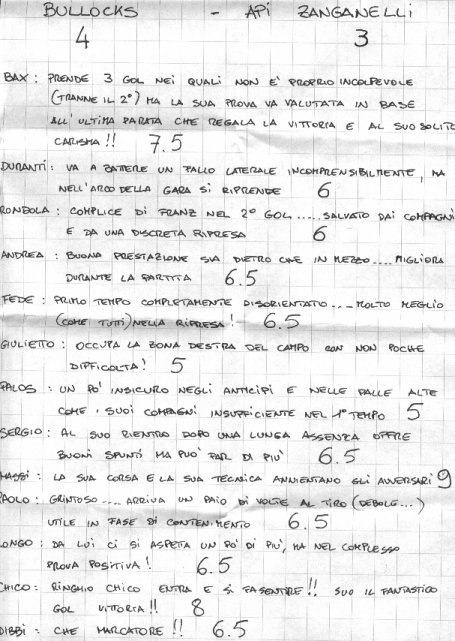 BULLOCKS - API ZANGANELLI
4 3
BAX : PRENDE 3 GOL NEI QUALI NON E' PROPRIO INCOLPEVOLE
(TRANNE IL 2°) MA LA SUA PROVA VA VALUTATA IN BASE
ALL'ULTIMA PARATA CHE REGALA LA VITTORIA E AL SUO SOLITO
CARISMA !! 7.5
DURANTI : VA A BATTERE UN FALLO LATERALE INCOMPRENSIBILMENTE, MA
NELL'ARCO DELLA GARA SI RIPRENDE 6
RONDOLA : COMPLICE DI FRANZ NEL 2° GOL ..... SALVATO DAI COMPAGNI
E DA UNA DISCRETA RIPRESA 6
ANDREA : BUONA PRESTAZIONE SIA DIETRO CHE IN MEZZO .... MIGLIORA
DURANTE LA PARTITA 6.5
FEDE : PRIMO TEMPO COMPLETAMENTE DISORIENTATO .... MOLTO MEGLIO
(COME TUTTI) NELLA RIPRESA ! 6.5
GIULIETTO : OCCUPA LA ZONA DESTRA DEL CAMPO CON NON POCHE
DIFFICOLTA' ! 5
PALOS : UN PO' INSICURO NEGLI ANTICIPI E NELLE PALLE ALTE
COME I SUOI COMPAGNI INSUFFICIENTE NEL 1° TEMPO 5
SERGIO : AL SUO RIENTRO DOPO UNA LUNGA ASSENZA OFFRE
BUONI SPUNTI MA PUO' FAR DI PIU' 6.5
MASSI : LA SUA CORSA E LA SUA TECNICA ANNIENTANO GLI AVVERSARI 9
PAOLO : GRINTOSO .... ARRIVA UN PAIO DI VOLTE AL TIRO (DEBOLE...)
UTILE IN FASE DI CONTENIMENTO 6.5
LONGO : DA LUI CI SI ASPETTA UN PO' DI PIU', MA NEL COMPLESSO
PROVA POSITIVA ! 6.5
CHICO : RINGHIO CHICO ENTRA E SI FA SENTIRE !! SUO IL FANTASTICO
GOL VITTORIA !! 8
DIBBI : CHE MARCATORE !! 6.5